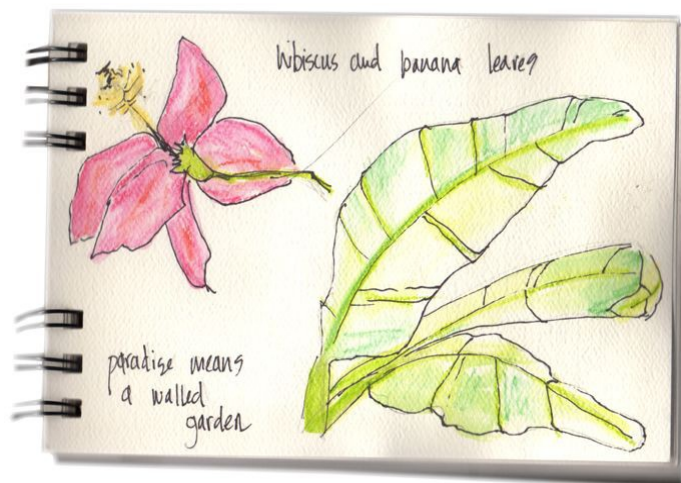 hibiscus and banana leaves
paradise means
a walled
garden